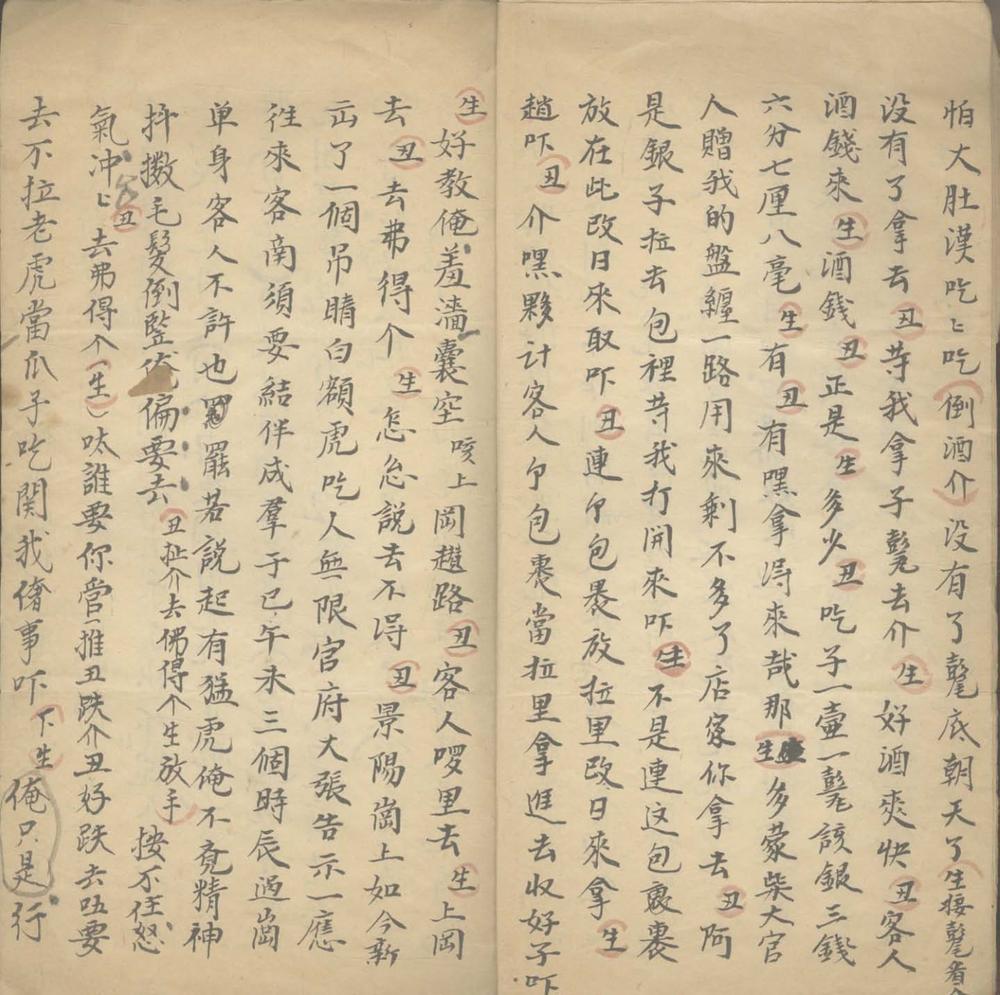 怕大肚漢吃〻吃(倒酒介)没有了鼈底朝天了生接鼈看介
没有了拿去丑䓁我拿子鼈去介生好酒爽快丑客人
酒錢來生酒錢丑正是生多少丑吃子一壷一鼈該銀三錢
六分七厘八毫生有丑有嘿拿淂來哉那生多蒙柴大官
人贈我的盤纏一路用來剩不多了店家你拿去丑阿
是銀子拉去包裡䓁我打開來吓生不是連这包裹裹
放在此改日來取吓丑連个包裹放拉里改日來拿生
趙吓丑介嘿夥计客人个包裹當拉里拿進去收好子吓
生好教俺羞濇囊空咳上岡趲路丑客人啰里去生上岡
去丑去弗得个生怎怎説去不淂丑景陽崗上如今新
出了一個吊睛白額虎吃人無限官府大張告示一應
徃來客南須要結伴成羣于巳午未三個時辰過崗
单身客人不許也罷若説起有猛虎俺不竟精神
抖擻毛髮倒監偏要去丑扯介去怫得个生放手按不住怒
氣冲〻丑去弗得个(生)呔誰要你管推丑跌介丑好跌去伍要
去不拉老虎當爪子吃関我儹事吓下生俺只是行